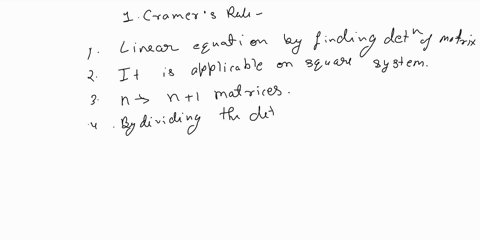 1. Cramer's Rule -
1. Linear equation by finding detⁿ of matrix
2. It is applicable on square system.
3 n → n+1 matrices.
4. By dividing the det